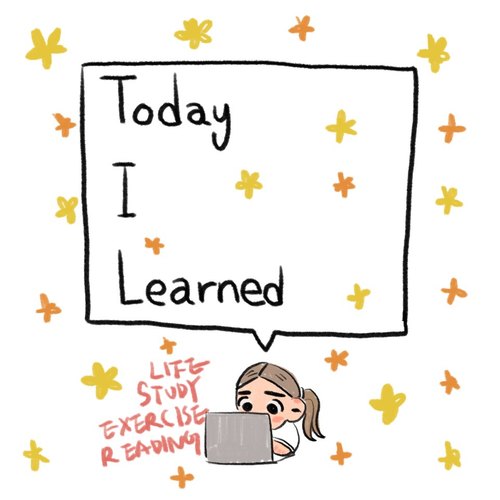 Today
I
Learned
LIFE
STUDY
EXERCISE
READING